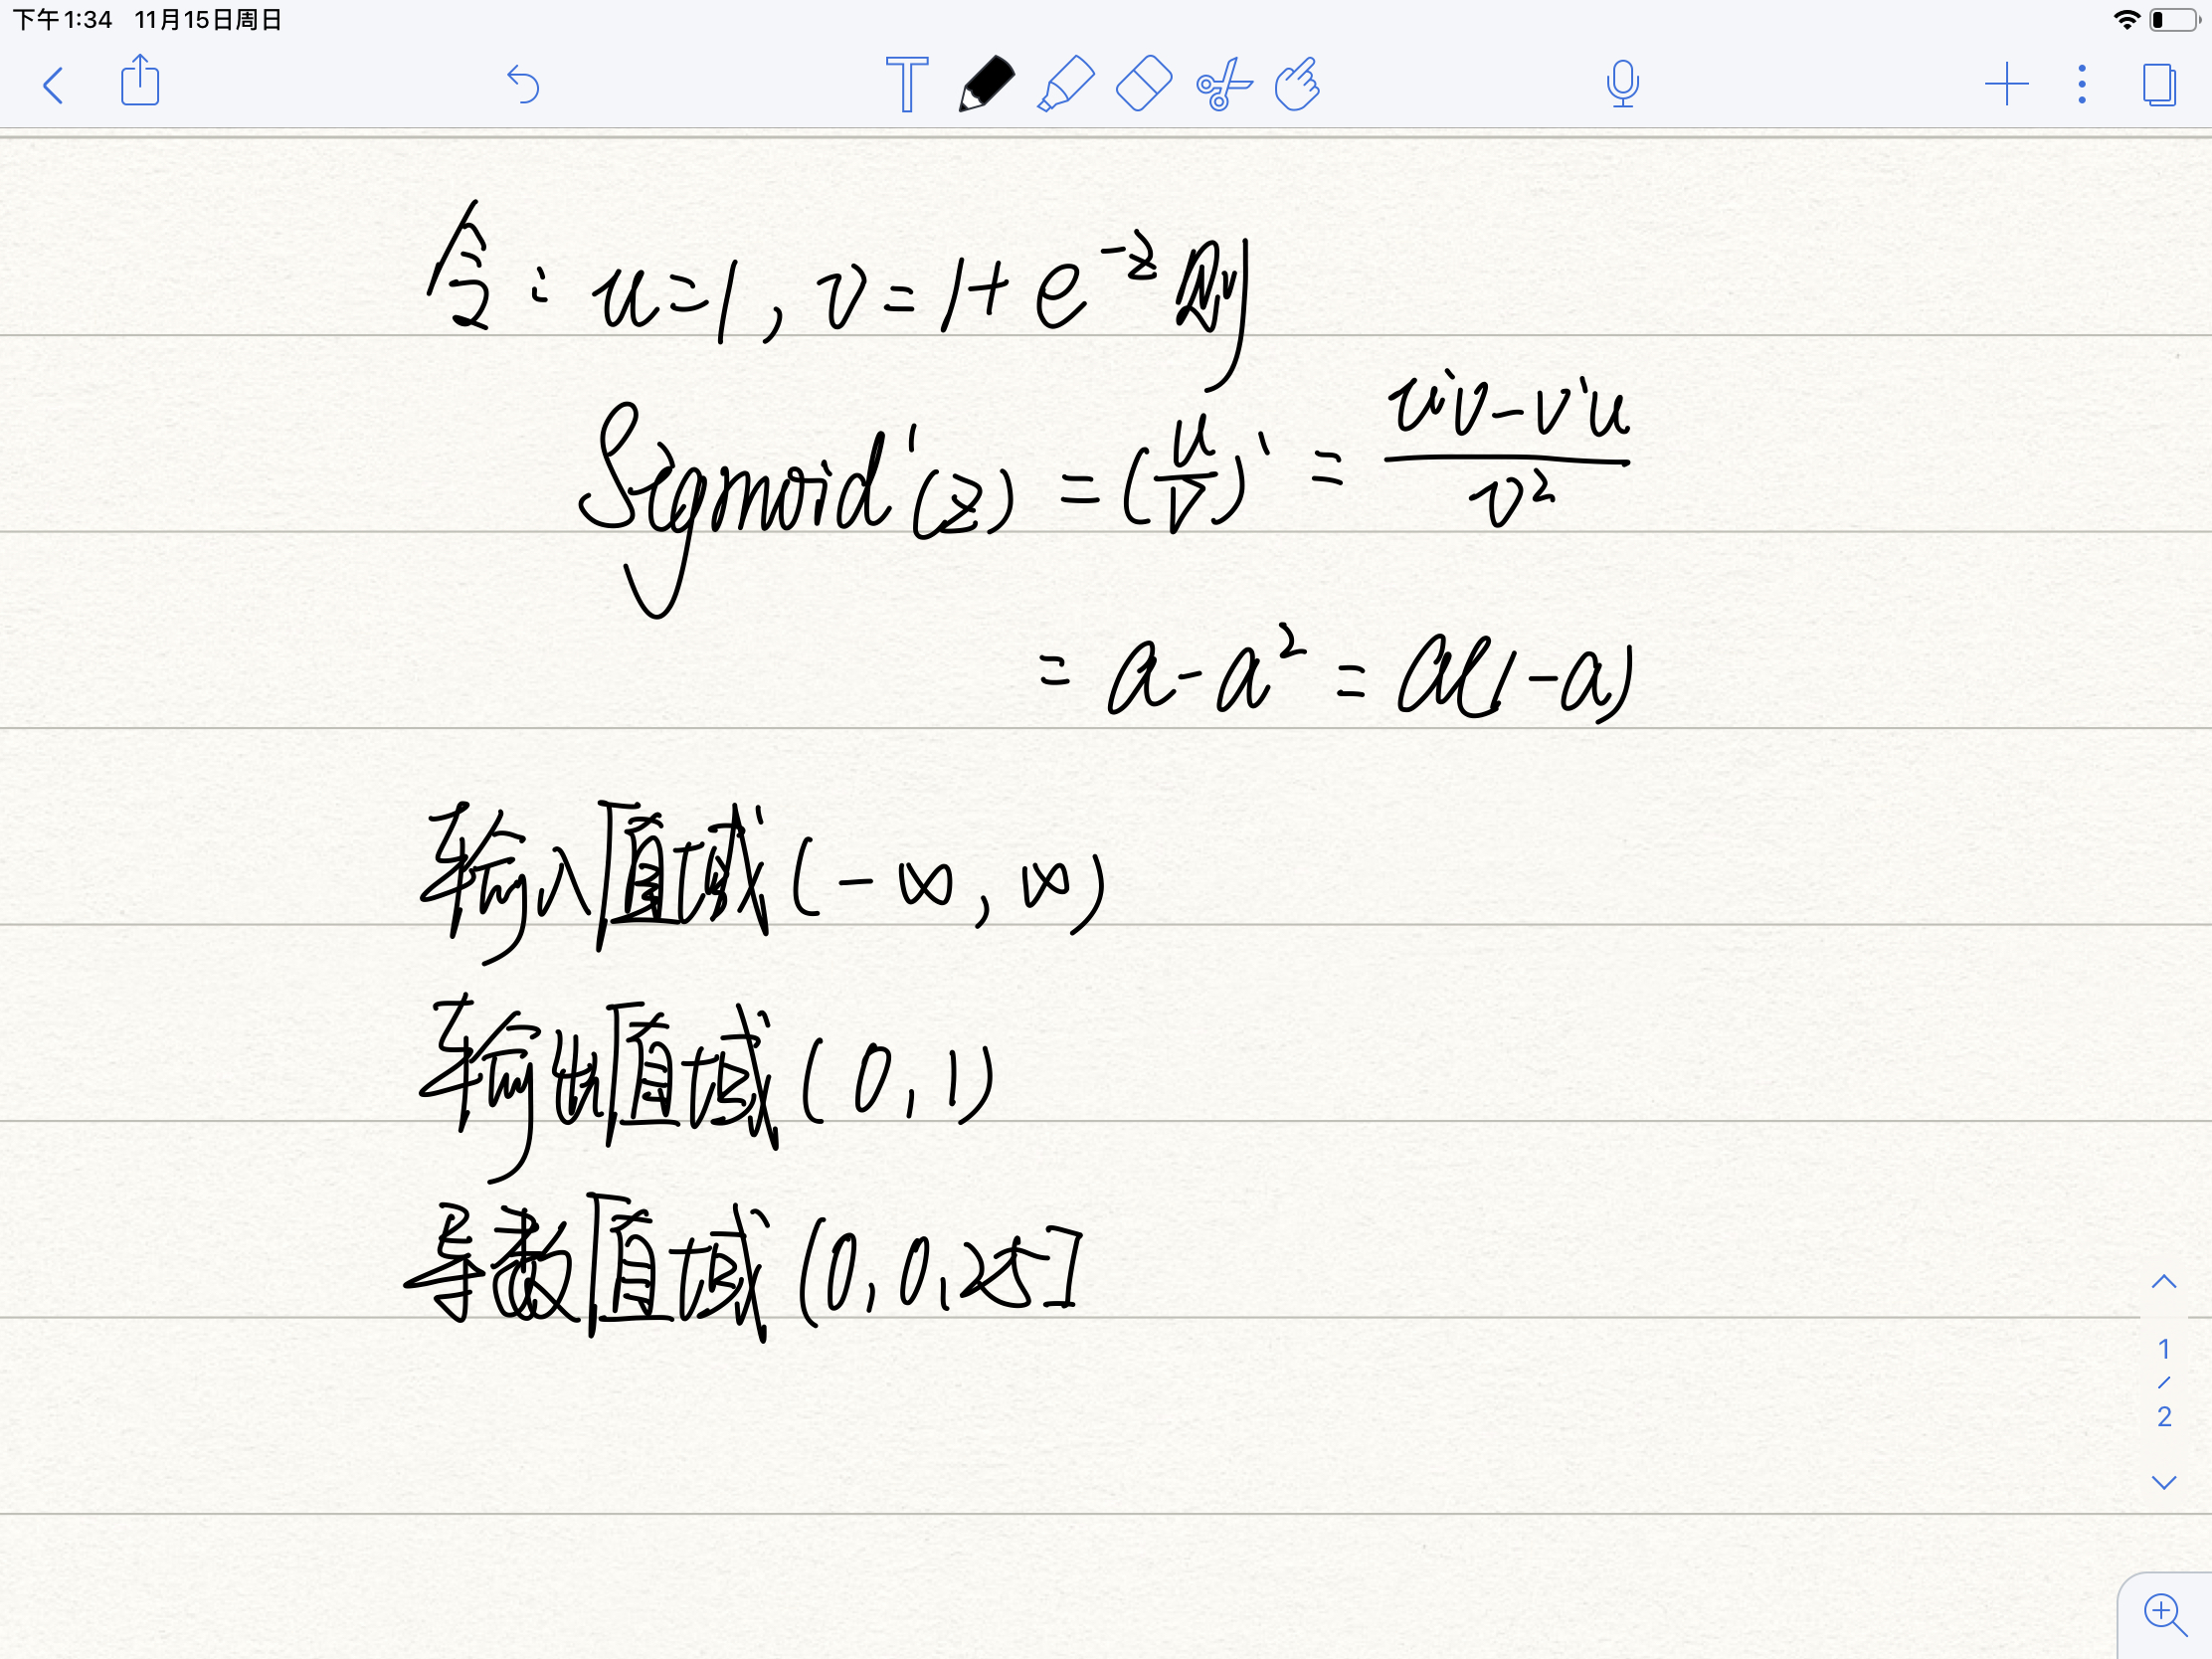 下午1:34 11月15日周日
T
令：u=1, v=1+e^{-z} 则
Sigmoid'(z) = (u/v)' = (u'v-v'u)/v²
= a-a² = a(1-a)
输入值域(-∞, ∞)
输出值域(0,1)
导数值域(0,0.25]
1
/
2